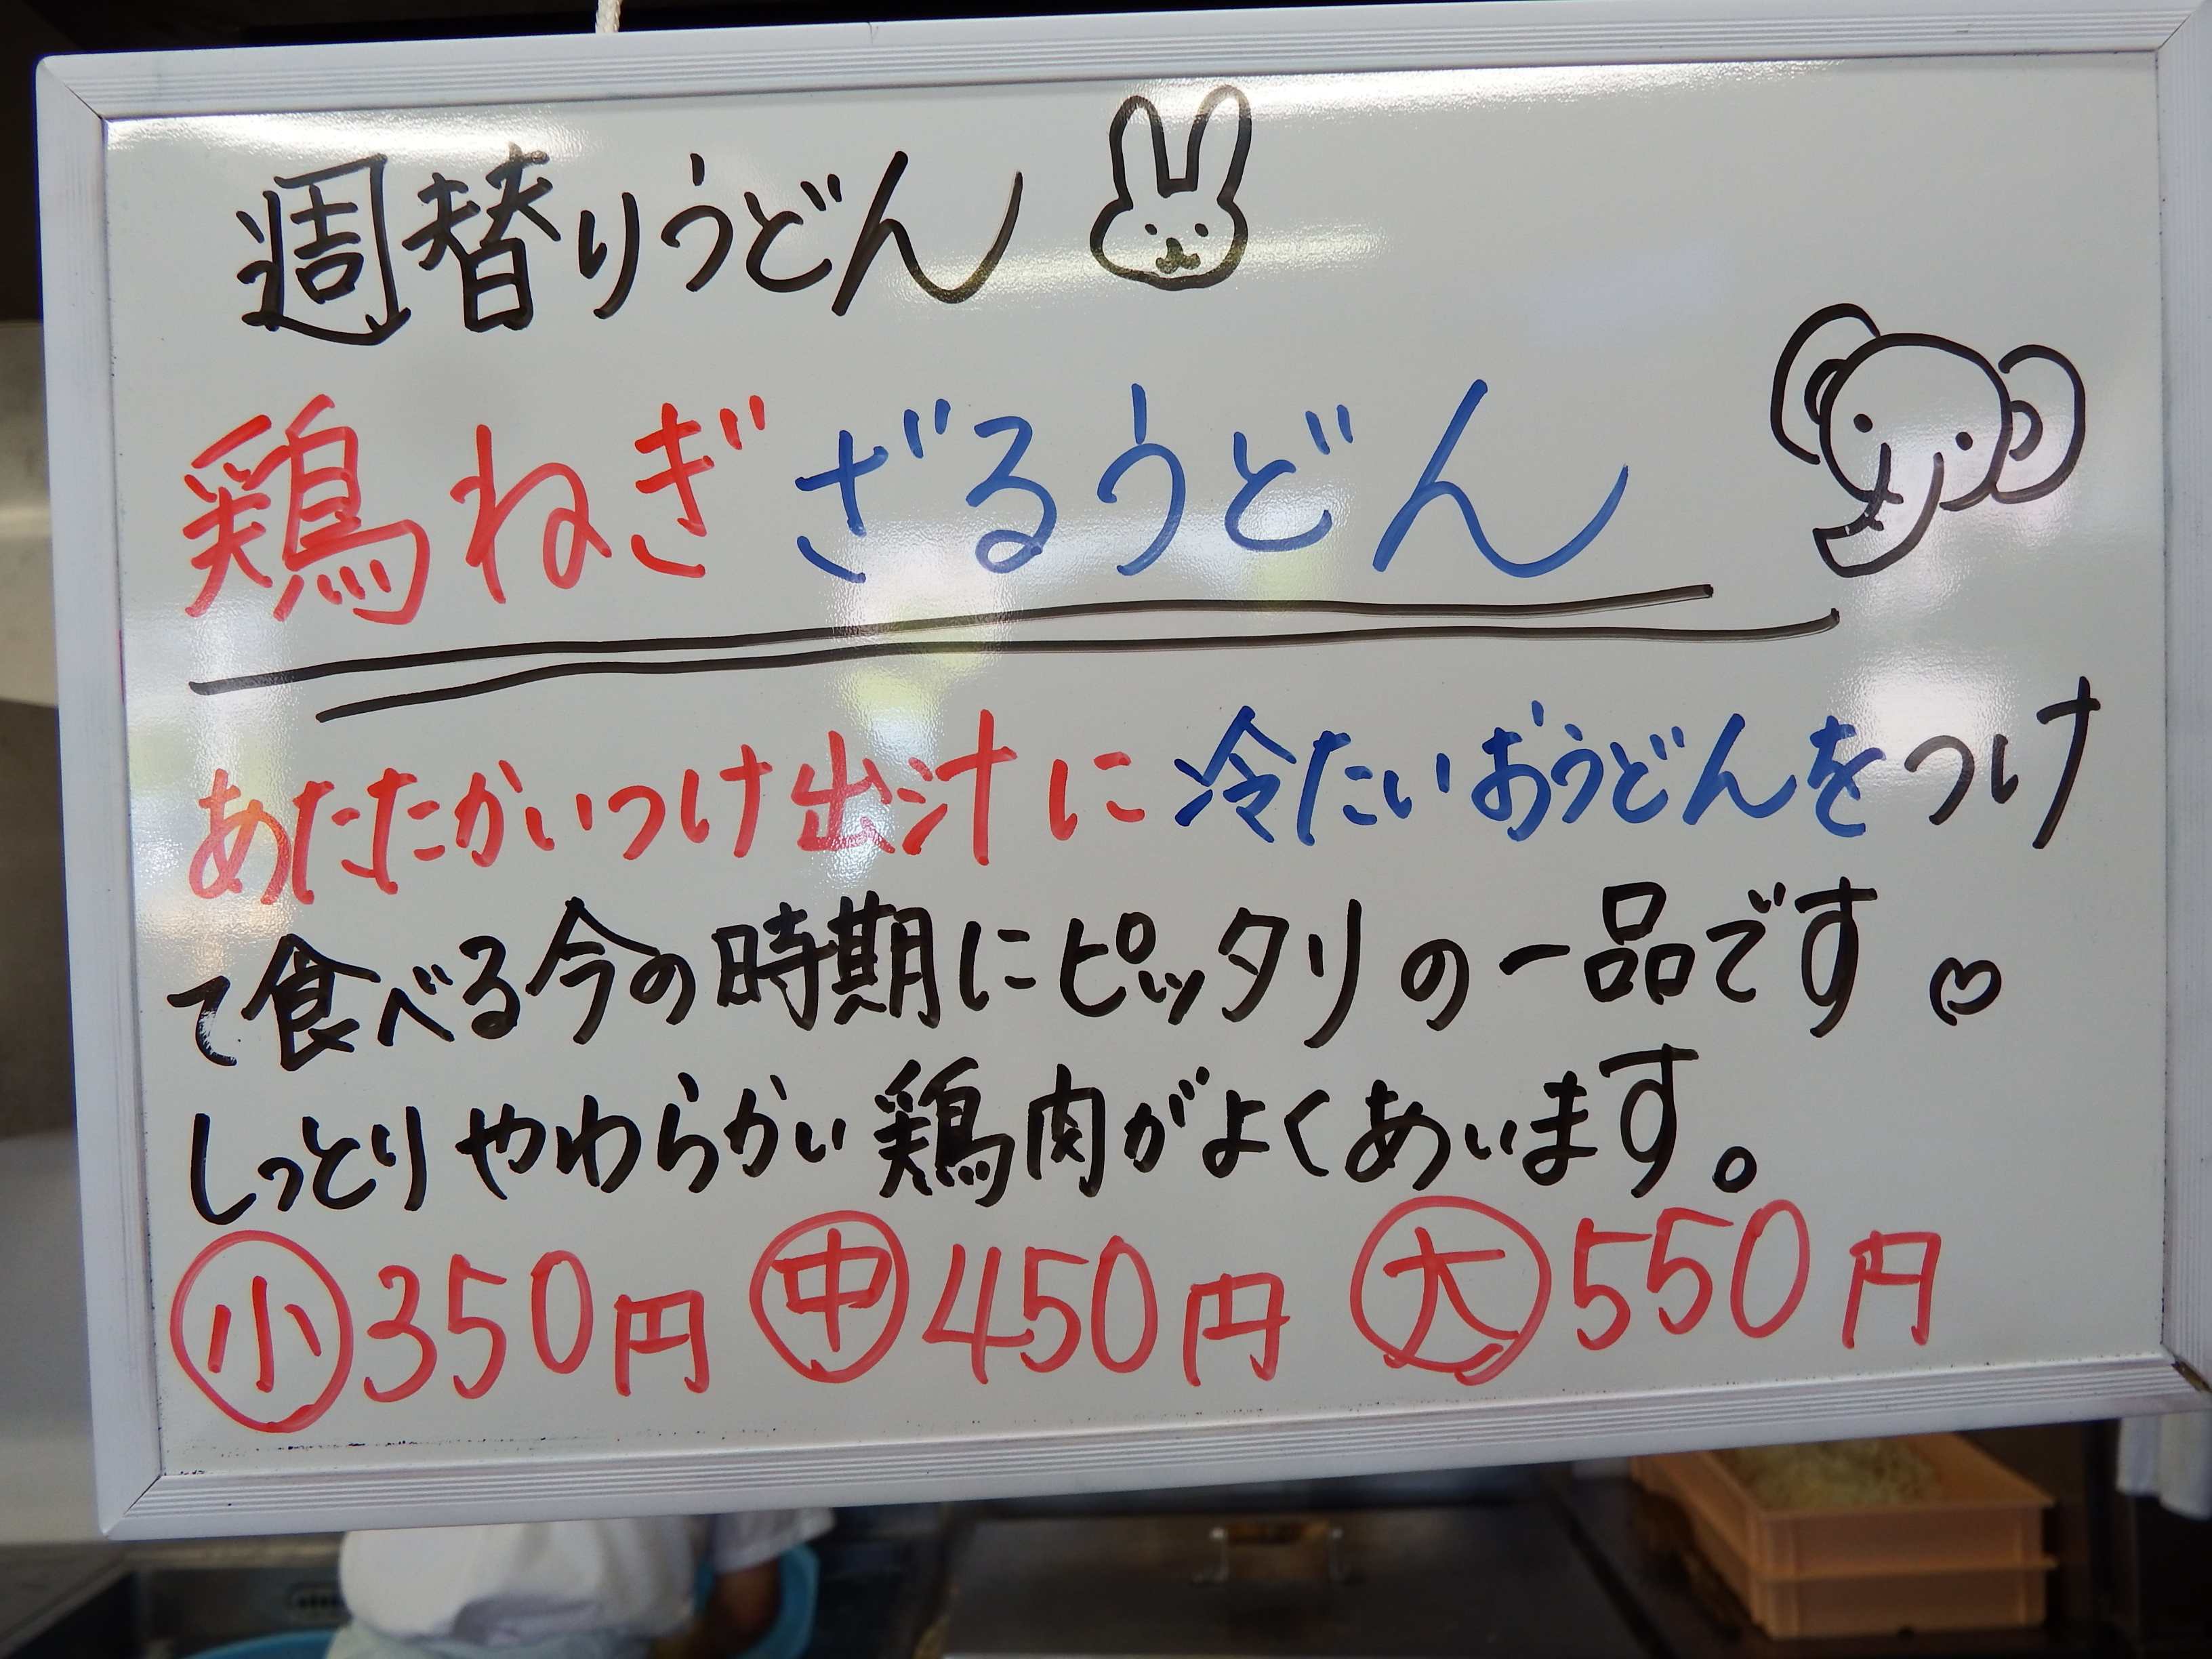 週替りうどん
鶏ねぎざるうどん
あたたかいつけ出汁に冷たいおうどんをつけ
て食べる今の時期にピッタリの一品です♡
しっとりやわらかい鶏肉がよくあいます。
㊙小350円 ㊥450円 大550円